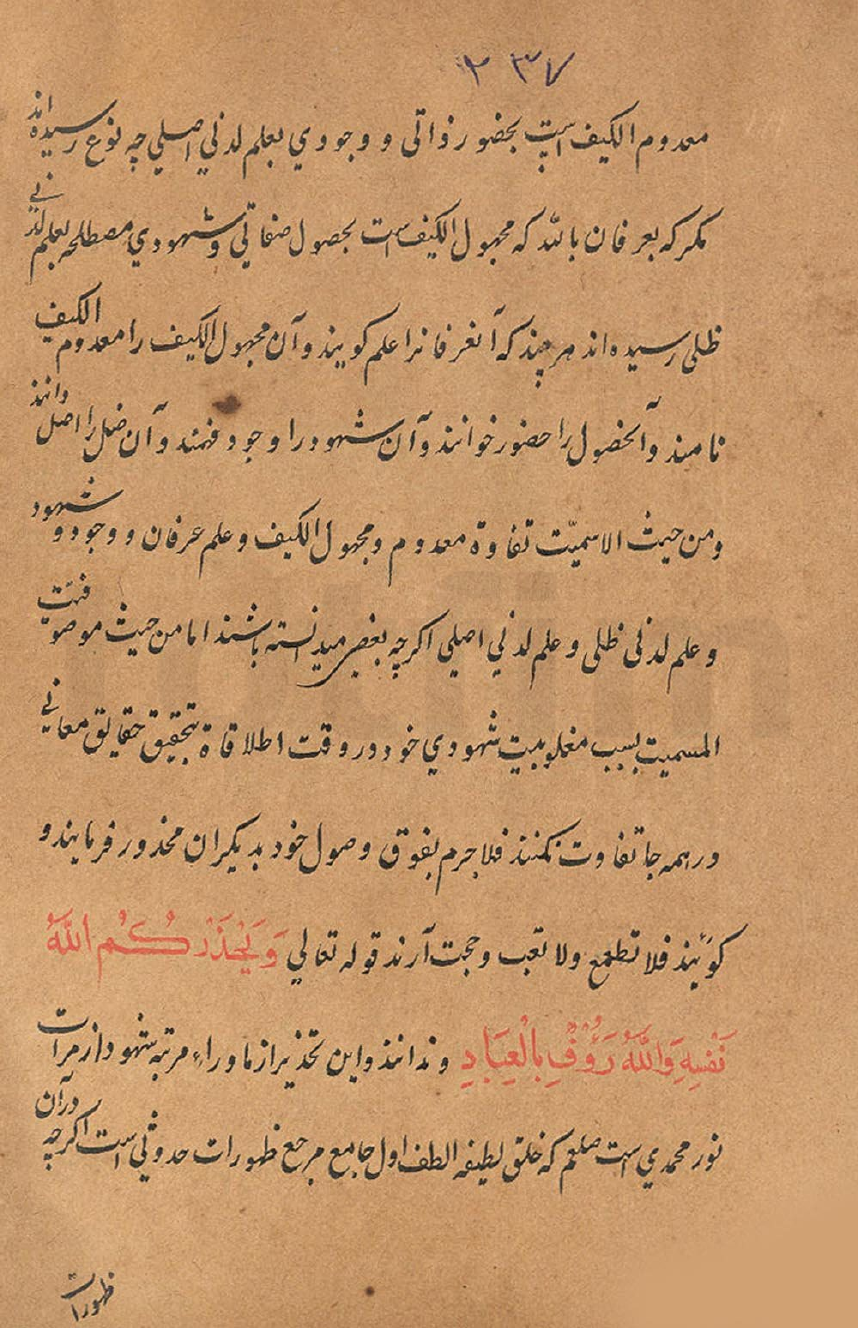 ۲۳۷
معدوم الكيف است بحضور ذواتی و وجودي بعلم لدني اصلي چه نوع رسيده اند
مكر كه بعرفان بالله كه مجهول الكيف است بحصول صفاتي و شهودي مصطلحه بعلم لدني
ظلی رسيده اند هر چند كه آنعرفانرا علم كويند و آن مجهول الكيف را معدوم الكيف
نامند و آنحصول را حضور خوانند و آن شهود را وجود فهمند و آن ظل را اصل دانند
ومن حيث الاسميّت تفاوة معدوم و مجهول الكيف و علم عرفان و وجود و شهود
و علم لدني ظلی و علم لدني اصلي اكرچه بعضی ميدانسته باشند اما من حيث موصوفيّت
المسميت بسبب مغلوبيت شهودي خود در وقت اطلاقاة بتحقيق حقايق معاني
در همه جا تفاوت نكنند فلاجرم بفوق وصول خود بديكران محذور فرمايند و
كوئيند فلا تطمع ولا تعب و حجت آرند قوله تعالي وَيُحَذِّرُكُمُ اللّٰهُ
نَفْسَهِ وَاللّٰهُ رَؤُفٌ بِالْعِبَادِ و ندانند و اين تحذير از ماوراء مرتبه شهود از مرآت
نور محمدي است صلعم كه خلق لطيفه الطف اول جامع مرجع ظهورات حدوثي است اكرچه در آن
ظهورات